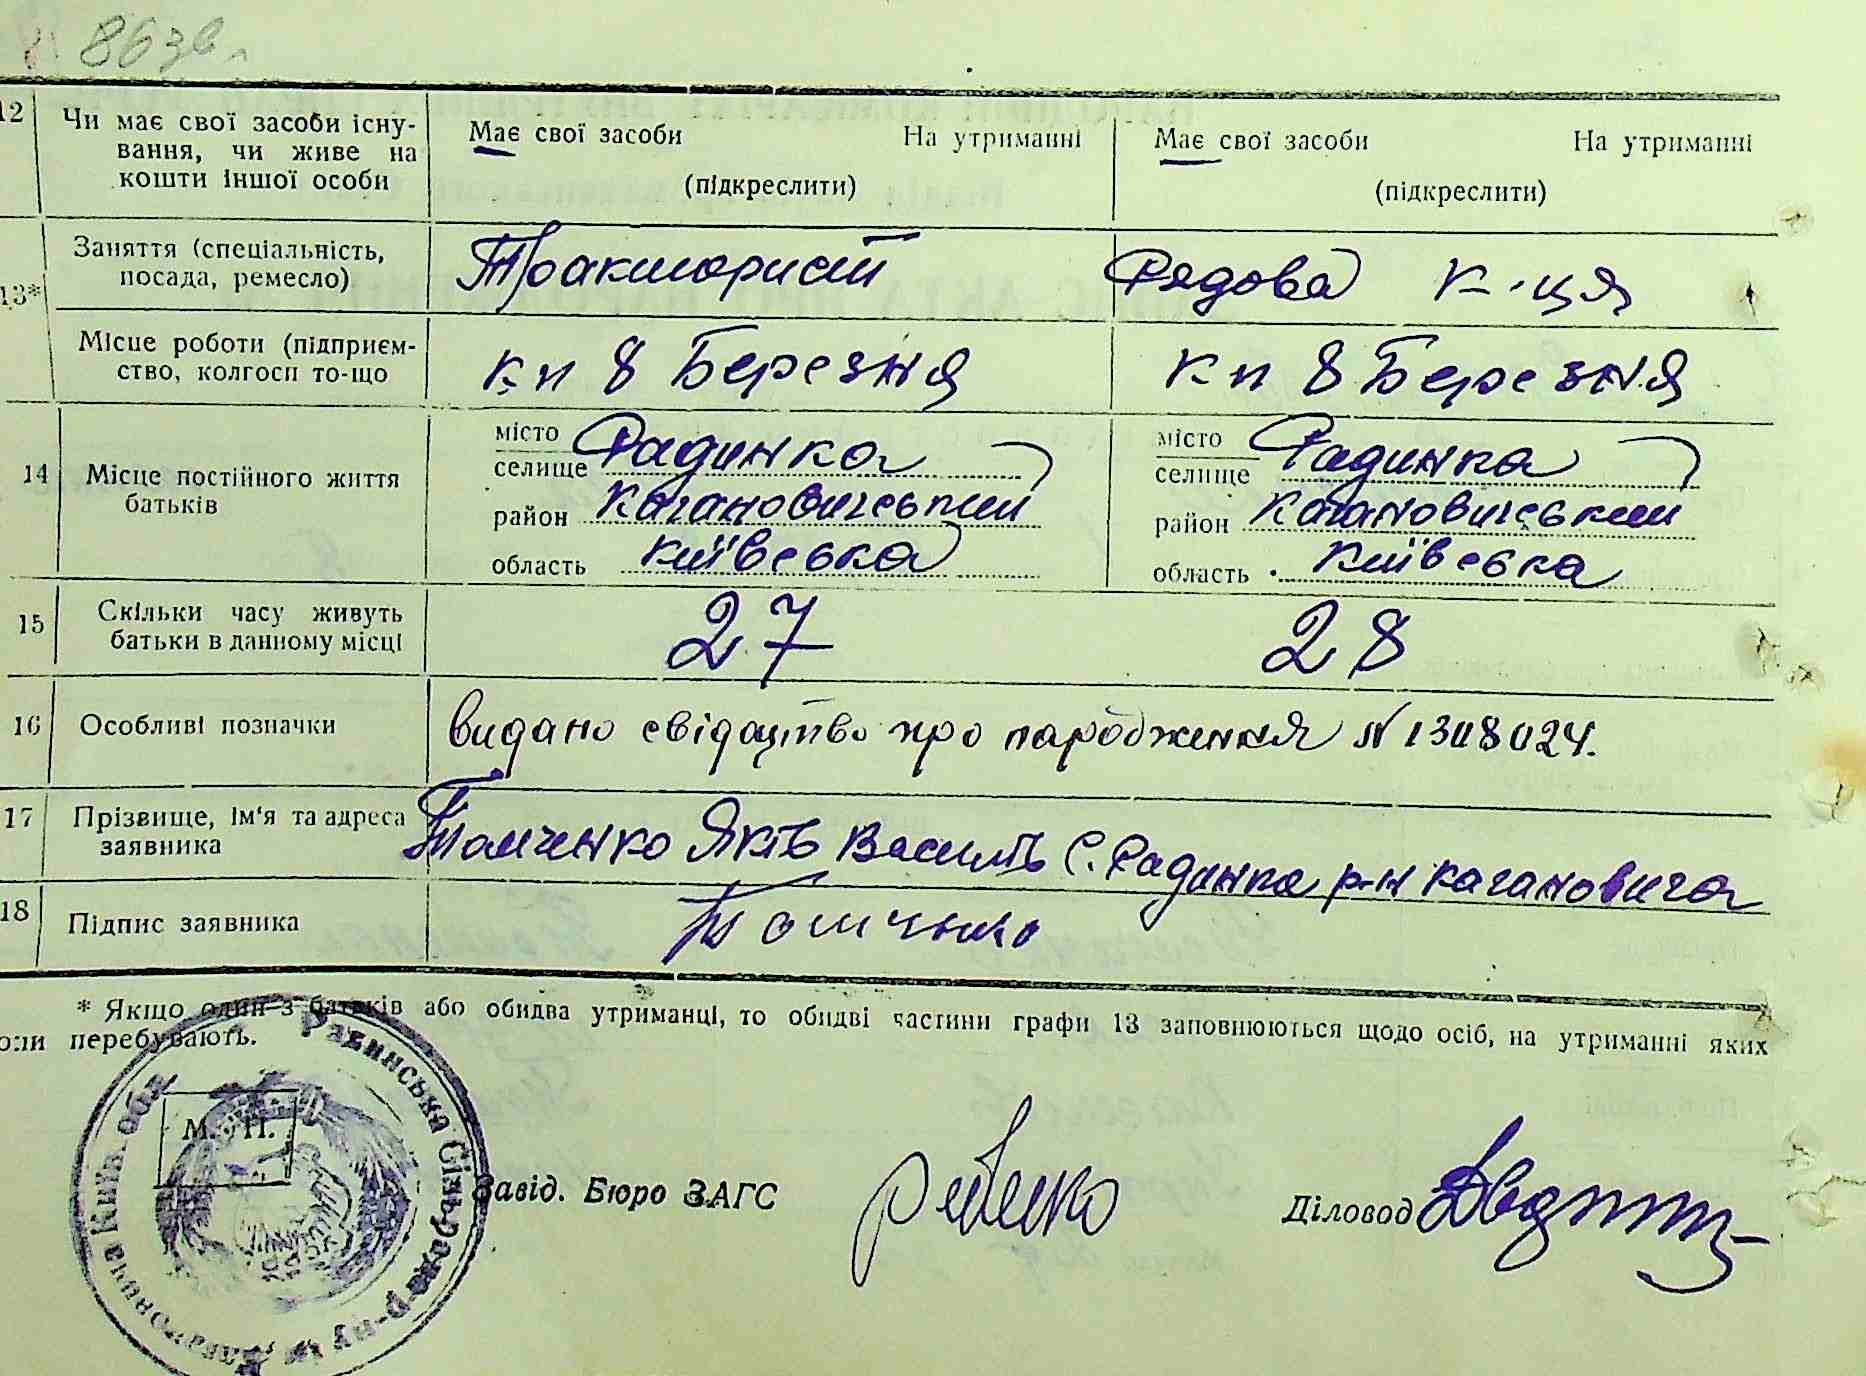 863в
12 Чи має свої засоби існу-
вання, чи живе на
кошти іншої особи
Має свої засоби На утриманні
(підкреслити)
Має свої засоби На утриманні
(підкреслити)
13* Заняття (спеціальність,
посада, ремесло)
Трактористт Рядова к-ця
Місце роботи (підприєм-
ство, колгосп то-що
к-п 8 Березня к-п 8 Березня
14 Місце постійного життя
батьків
місто
селище Радинка
район Кагановичський
область Київська
місто
селище Радинка
район Кагановичський
область Київська
15 Скільки часу живуть
батьки в данному місці
27 28
16 Особливі позначки
видано свідацтво про народження N 1308024.
17 Прізвище, ім'я та адреса
заявника
Томченко Яків Василь с. Радинка р-н Кагановича
18 Підпис заявника
Томченко
* Якщо один з батьків або обидва утриманці, то обидві частини графи 13 заповнюються щодо осіб, на утриманні яких
они перебувають.
М. П.
Радинська Сільрада р-ну ім. Кагановича Київ. обл.
Завід. Бюро ЗАГС
Діловод